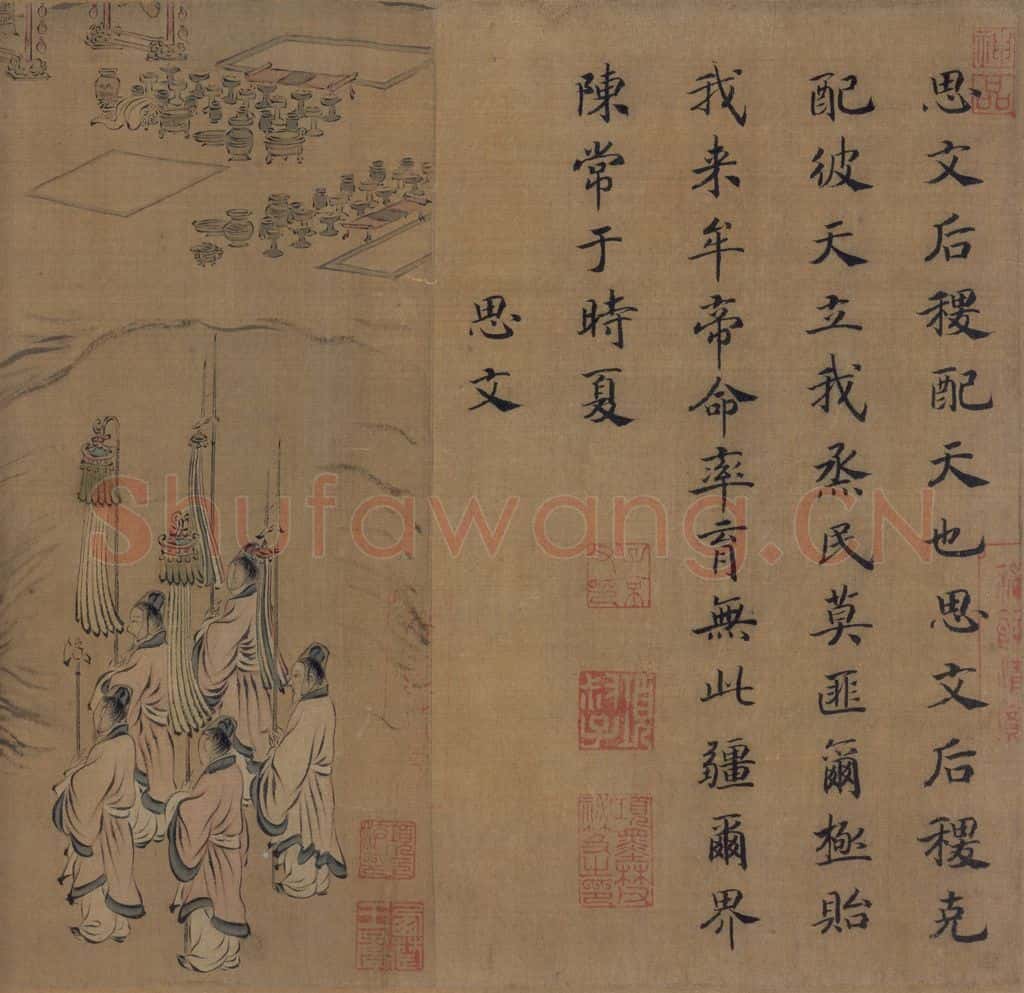 思文后稷配天也思文后稷克
配彼天立我烝民莫匪爾極貽
我来牟帝命率育無此疆爾界
陳常于時夏
思文
Shufawang.CN